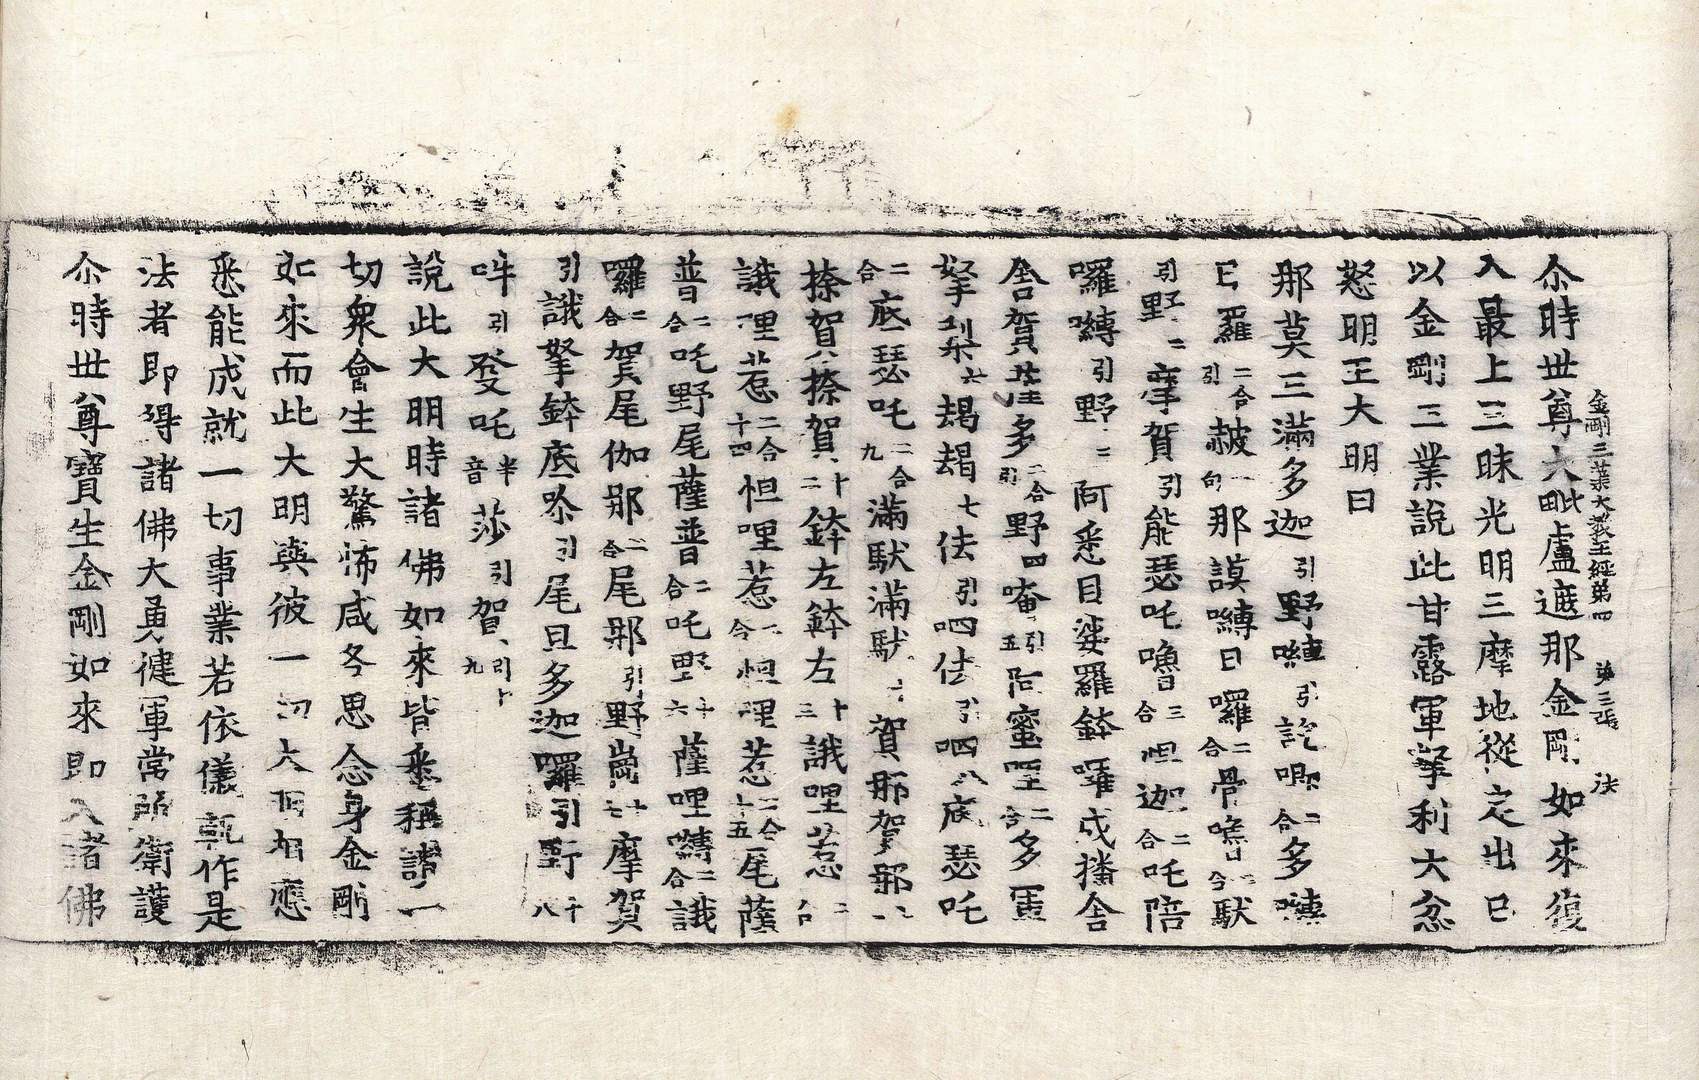 金剛三業大教王經第四 第三張 法
尒時世尊大毗盧遮那金剛如來復
入最上三昧光明三摩地從定出已
以金剛三業說此甘露軍拏利大忿
怒明王大明曰
那莫三滿多迦引野嚩引訖唧二合多嚩
日羅二合引赧句一那謨嚩日囉二合骨嚕二合馱
引野二摩賀引能瑟吒嚕三合怛迦二合吒陪
囉嚩引野三阿悉目娑羅鉢囉戍播舍
賀薩多二合引野四唵引五阿蜜哩二合多軍
拏利六朅朅七佉引呬佉引呬八底瑟吒
二合底瑟吒二合九滿馱滿馱十賀那賀那十一
捺賀捺賀十二鉢左鉢左十三誐哩惹二合
誐哩惹二合十四怛哩惹二合怛哩惹二合十五尾薩
普二合吒野尾薩普二合吒野十六薩哩嚩二合誐
囉二合賀尾伽那二合尾那引野崗十七摩賀
引誐拏鉢底祢引尾旦多迦囉引野十八
吽引發吒半音莎引賀引十九
說此大明時諸佛如來皆悉稱讚一
切衆會生大驚怖咸各思念身金剛
如來而此大明與彼一切大明相應
悉能成就一切事業若依儀軌作是
法者即得諸佛大勇健軍常所衛護
尒時世尊寶生金剛如來即入諸佛